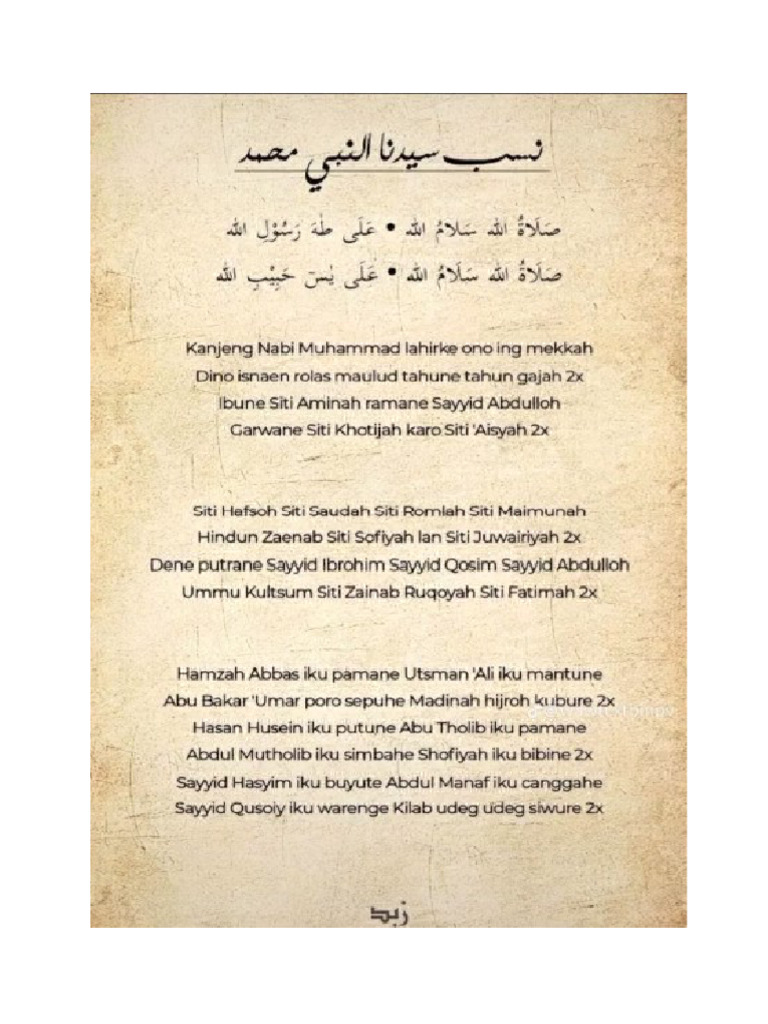 نسب سيدنا النبي محمد
صَلَاةُ الله سَلَامُ الله • عَلَى طٰهَ رَسُوْلِ الله
صَلَاةُ الله سَلَامُ الله • عَلَى يٰسٓ حَبِيْبِ الله
Kanjeng Nabi Muhammad lahirke ono ing mekkah
Dino isnaen rolas maulud tahune tahun gajah 2x
Ibune Siti Aminah ramane Sayyid Abdulloh
Garwane Siti Khotijah karo Siti 'Aisyah 2x
Siti Hafsoh Siti Saudah Siti Romlah Siti Maimunah
Hindun Zaenab Siti Sofiyah lan Siti Juwairiyah 2x
Dene putrane Sayyid Ibrohim Sayyid Qosim Sayyid Abdulloh
Ummu Kultsum Siti Zainab Ruqoyah Siti Fatimah 2x
Hamzah Abbas iku pamane Utsman 'Ali iku mantune
Abu Bakar 'Umar poro sepuhe Madinah hijroh kubure 2x
Hasan Husein iku putune Abu Tholib iku pamane
Abdul Mutholib iku simbahe Shofiyah iku bibine 2x
Sayyid Hasyim iku buyute Abdul Manaf iku canggahe
Sayyid Qusoiy iku warenge Kilab udeg udeg siwure 2x